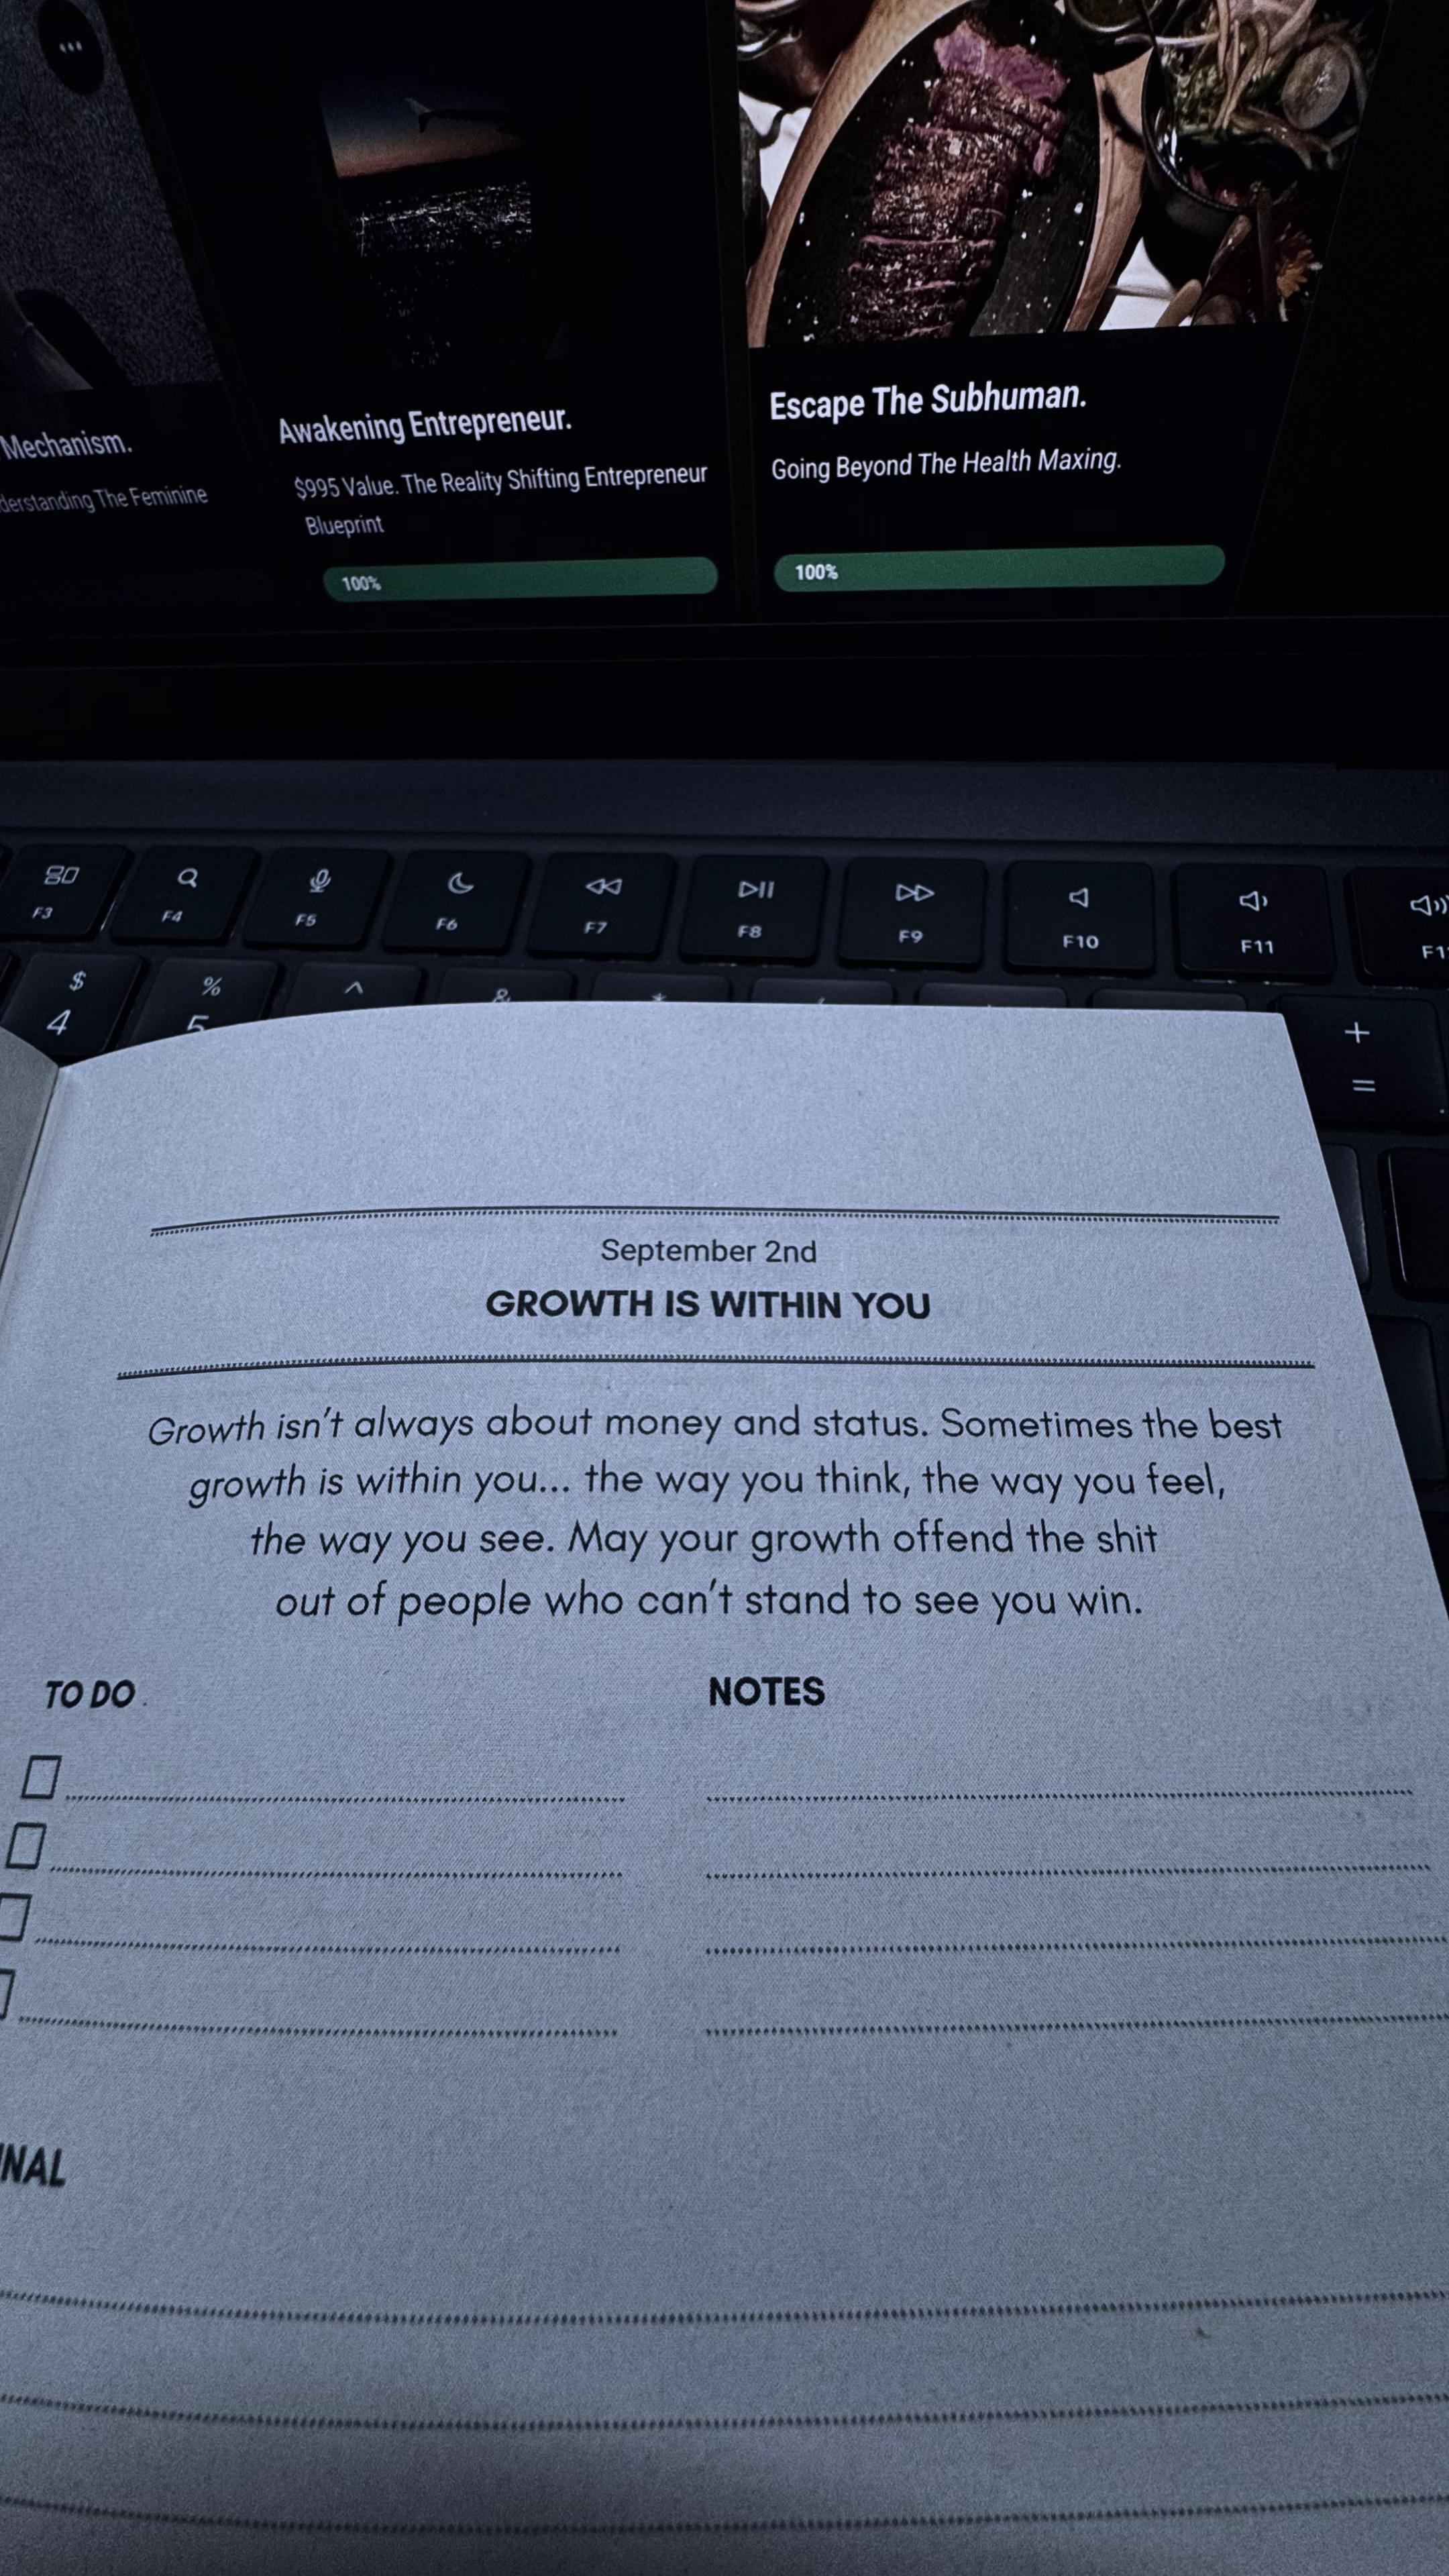 Mechanism.
derstanding The Feminine
Awakening Entrepreneur.
$995 Value. The Reality Shifting Entrepreneur
Blueprint
100%
Escape The Subhuman.
Going Beyond The Health Maxing.
100%
F3 F4 F5 F6 F7 F8 F9 F10 F11 F1
$ % ^ & *
4 5
+
=
September 2nd
GROWTH IS WITHIN YOU
Growth isn't always about money and status. Sometimes the best
growth is within you... the way you think, the way you feel,
the way you see. May your growth offend the shit
out of people who can't stand to see you win.
TO DO
NOTES
NAL